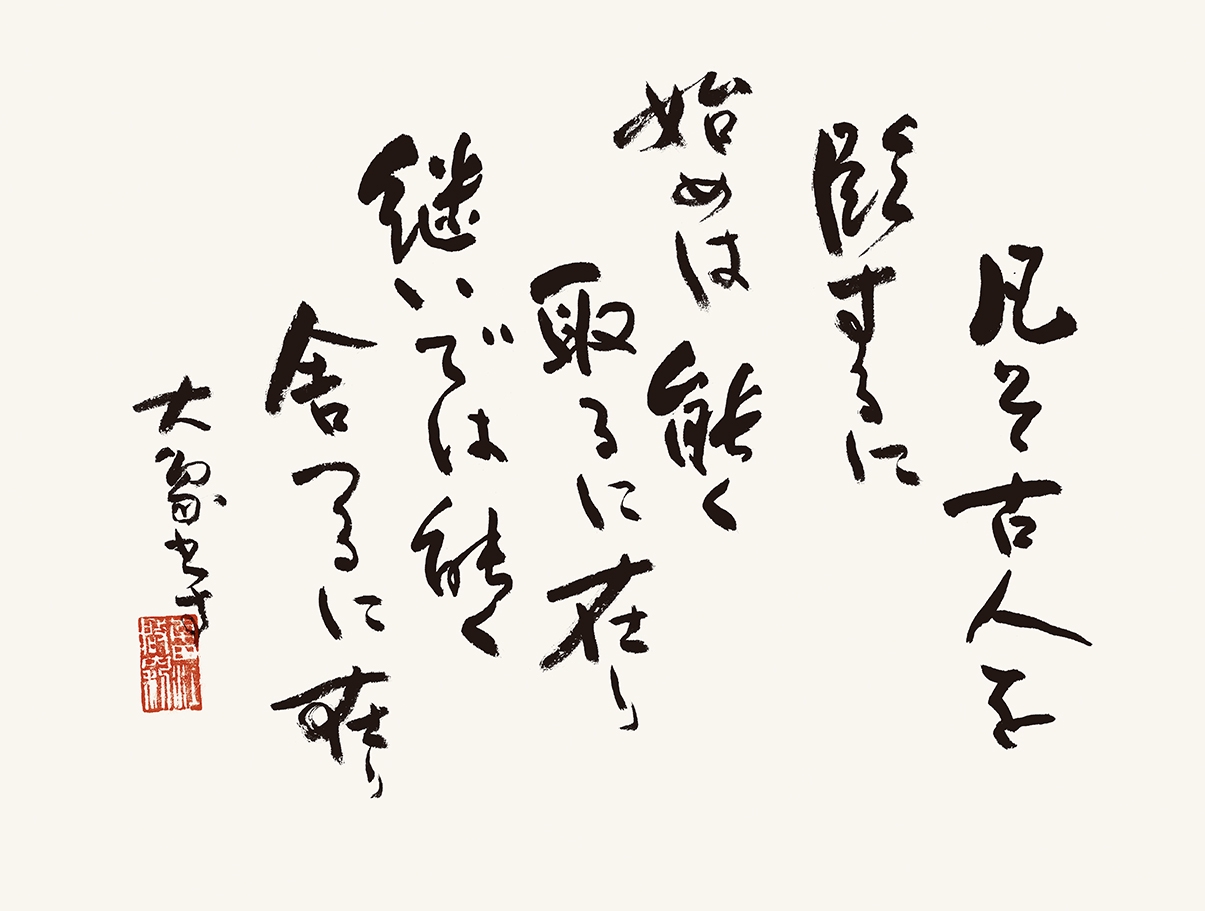 凡そ古人を
臨するに
始めは能く
取るに在り
継いでは能く
舎つるに在り
大象書